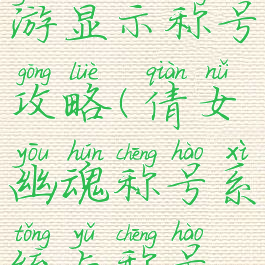 游显示称号
gōng lüè qiàn nǚ
攻略(倩女
yōu hún chēng hào xì
幽魂称号系
tǒng yǔ chēng hào
统与称号